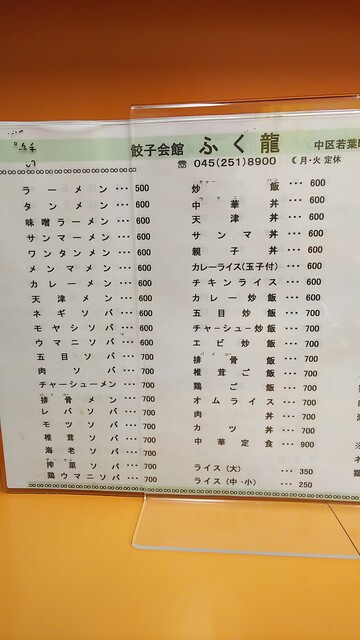 餃子会館 ふく龍 中区若葉町
☎ 045(251)8900 ☾月・火 定休
ラーメン・・・500
タンメン・・・600
味噌ラーメン・・・600
サンマーメン・・・600
ワンタンメン・・・600
メンマメン・・・600
カレーメン・・・600
天津メン・・・600
ネギソバ・・・600
モヤシソバ・・・600
ウマニソバ・・・600
五目ソバ・・・700
肉ソバ・・・700
チャーシューメン・・・700
排骨メン・・・700
レバソバ・・・700
モツソバ・・・700
椎茸ソバ・・・700
海老ソバ・・・700
搾菜ソバ・・・700
鶏ウマニソバ・・・700
炒飯・・・600
中華丼・・・600
天津丼・・・600
サンマ丼・・・600
親子丼・・・600
カレーライス(玉子付)・・・600
チキンライス・・・600
カレー炒飯・・・600
五目炒飯・・・700
チャーシュー炒飯・・・700
エビ炒飯・・・700
排骨飯・・・700
椎茸ご飯・・・700
鶏ご飯・・・700
オムライス・・・700
肉丼・・・700
カツ丼・・・700
中華定食・・・900
ライス(大)・・・350
ライス(中・小)・・・250